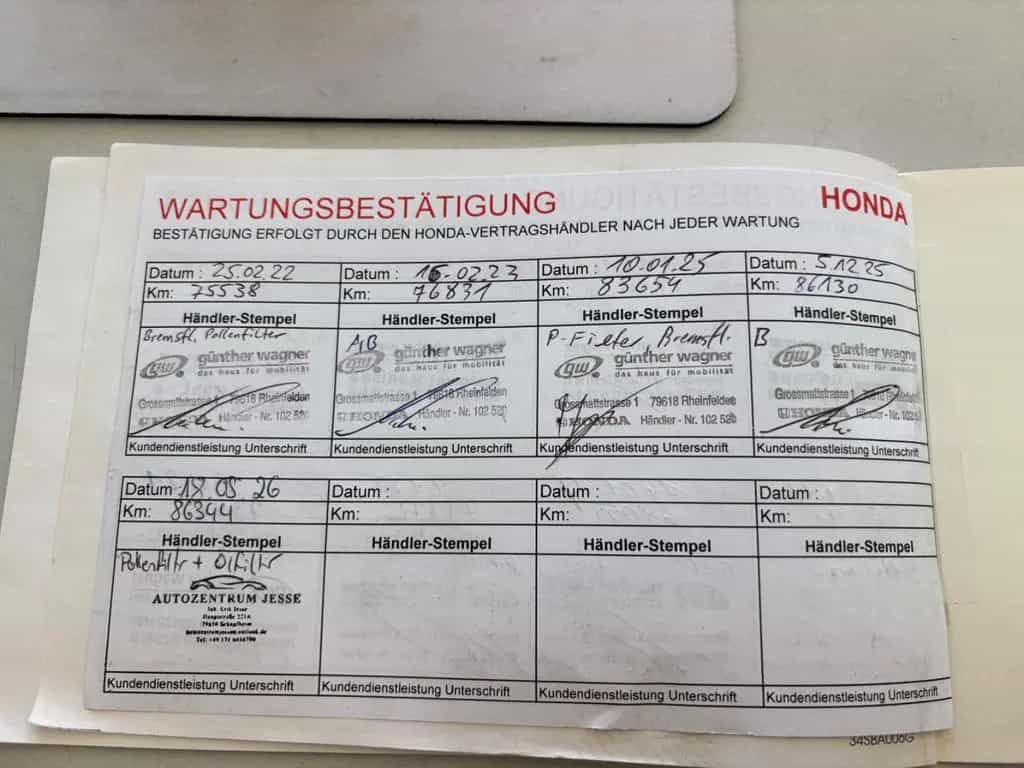 WARTUNGSBESTÄTIGUNG
HONDA
BESTÄTIGUNG ERFOLGT DURCH DEN HONDA-VERTRAGSHÄNDLER NACH JEDER WARTUNG
Datum : 25.02.22
Km: 75538
Händler-Stempel
Bremsfl, Pollenfilter
gw. günther wagner
das haus für mobilität
Grossmattstrasse 1 79618 Rheinfelden
HONDA Händler - Nr. 102 520
Kundendienstleistung Unterschrift
Datum : 15.02.23
Km: 76831
Händler-Stempel
A,B
gw. günther wagner
das haus für mobilität
Grossmattstrasse 1 79618 Rheinfelden
HONDA Händler - Nr. 102 520
Kundendienstleistung Unterschrift
Datum : 10.01.25
Km: 83654
Händler-Stempel
P-Filter, Bremsfl.
gw. günther wagner
das haus für mobilität
Grossmattstrasse 1 79618 Rheinfelden
HONDA Händler - Nr. 102 520
Kundendienstleistung Unterschrift
Datum : 5.12.25
Km: 86130
Händler-Stempel
B
gw. günther wagner
das haus für mobilität
Grossmattstrasse 1
HONDA Händler - Nr. 102
Kundendienstleistung Unterschrift
Datum : 18.05.26
Km: 86344
Händler-Stempel
Pollenfiltr + Ölfiltr
AUTOZENTRUM JESSE
Kundendienstleistung Unterschrift
Datum :
Km:
Händler-Stempel
Kundendienstleistung Unterschrift
Datum :
Km:
Händler-Stempel
Kundendienstleistung Unterschrift
Datum :
Km:
Händler-Stempel
Kundendienstleistung Unterschrift